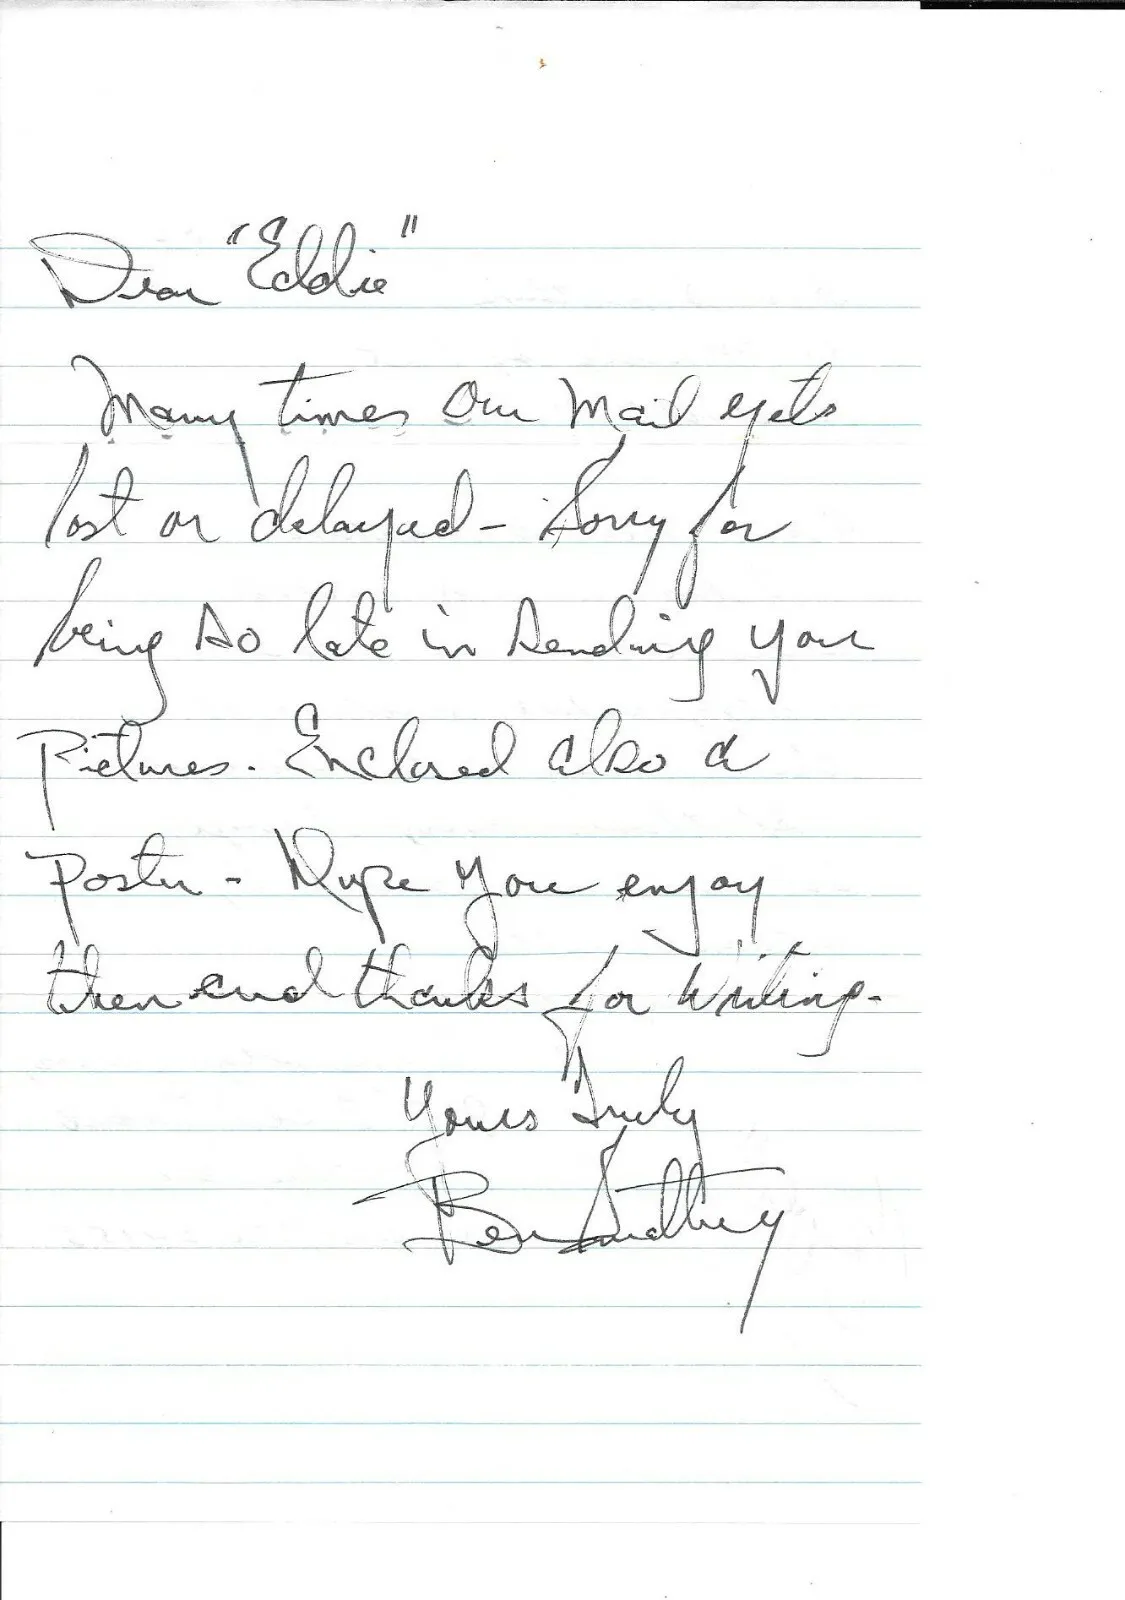 Dear "Eddie"
Many times our mail gets
lost or delayed - Sorry for
being so late in sending your
Pictures. Enclosed also a
Poster - Hope you enjoy
them and thanks for Writing.
Yours Truly
Ben